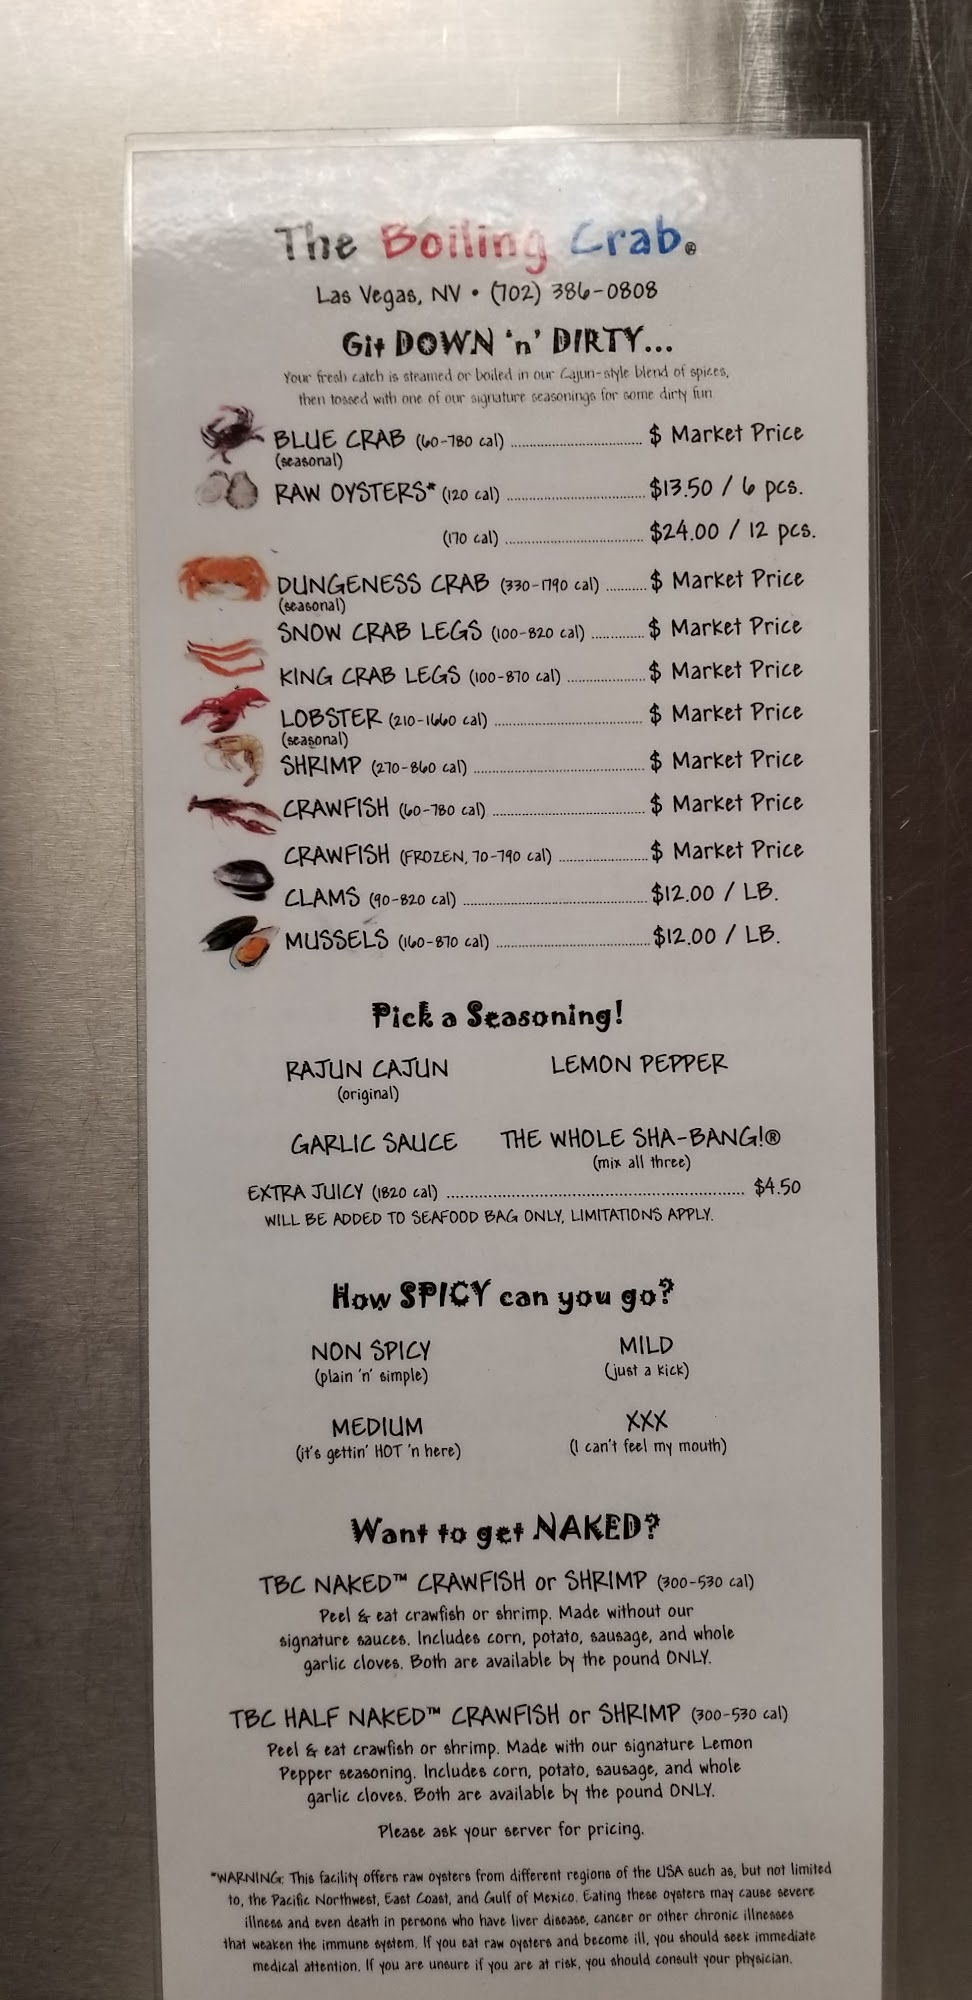 The Boiling Crab®
Las Vegas, NV • (702) 386-0808
Git DOWN 'n' DIRTY...
Your fresh catch is steamed or boiled in our Cajun-style blend of spices,
then tossed with one of our signature seasonings for some dirty fun.
BLUE CRAB (60-780 cal) ........ $ Market Price
(seasonal)
RAW OYSTERS* (120 cal) ........ $13.50 / 6 pcs.
(170 cal) ........ $24.00 / 12 pcs.
DUNGENESS CRAB (330-1790 cal) ........ $ Market Price
(seasonal)
SNOW CRAB LEGS (100-820 cal) ........ $ Market Price
KING CRAB LEGS (100-870 cal) ........ $ Market Price
LOBSTER (210-1660 cal) ........ $ Market Price
(seasonal)
SHRIMP (270-860 cal) ........ $ Market Price
CRAWFISH (60-780 cal) ........ $ Market Price
CRAWFISH (FROZEN, 70-790 cal) ........ $ Market Price
CLAMS (90-820 cal) ........ $12.00 / LB.
MUSSELS (160-870 cal) ........ $12.00 / LB.
Pick a Seasoning!
RAJUN CAJUN LEMON PEPPER
(original)
GARLIC SAUCE THE WHOLE SHA-BANG!®
(mix all three)
EXTRA JUICY (1820 cal) ........ $4.50
WILL BE ADDED TO SEAFOOD BAG ONLY, LIMITATIONS APPLY.
How SPICY can you go?
NON SPICY MILD
(plain 'n' simple) (just a kick)
MEDIUM XXX
(it's gettin' HOT 'n here) (I can't feel my mouth)
Want to get NAKED?
TBC NAKED™ CRAWFISH or SHRIMP (300-530 cal)
Peel & eat crawfish or shrimp. Made without our
signature sauces. Includes corn, potato, sausage, and whole
garlic cloves. Both are available by the pound ONLY.
TBC HALF NAKED™ CRAWFISH or SHRIMP (300-530 cal)
Peel & eat crawfish or shrimp. Made with our signature Lemon
Pepper seasoning. Includes corn, potato, sausage, and whole
garlic cloves. Both are available by the pound ONLY.
Please ask your server for pricing.
*WARNING: This facility offers raw oysters from different regions of the USA such as, but not limited
to, the Pacific Northwest, East Coast, and Gulf of Mexico. Eating these oysters may cause severe
illness and even death in persons who have liver disease, cancer or other chronic illnesses
that weaken the immune system. If you eat raw oysters and become ill, you should seek immediate
medical attention. If you are unsure if you are at risk, you should consult your physician.